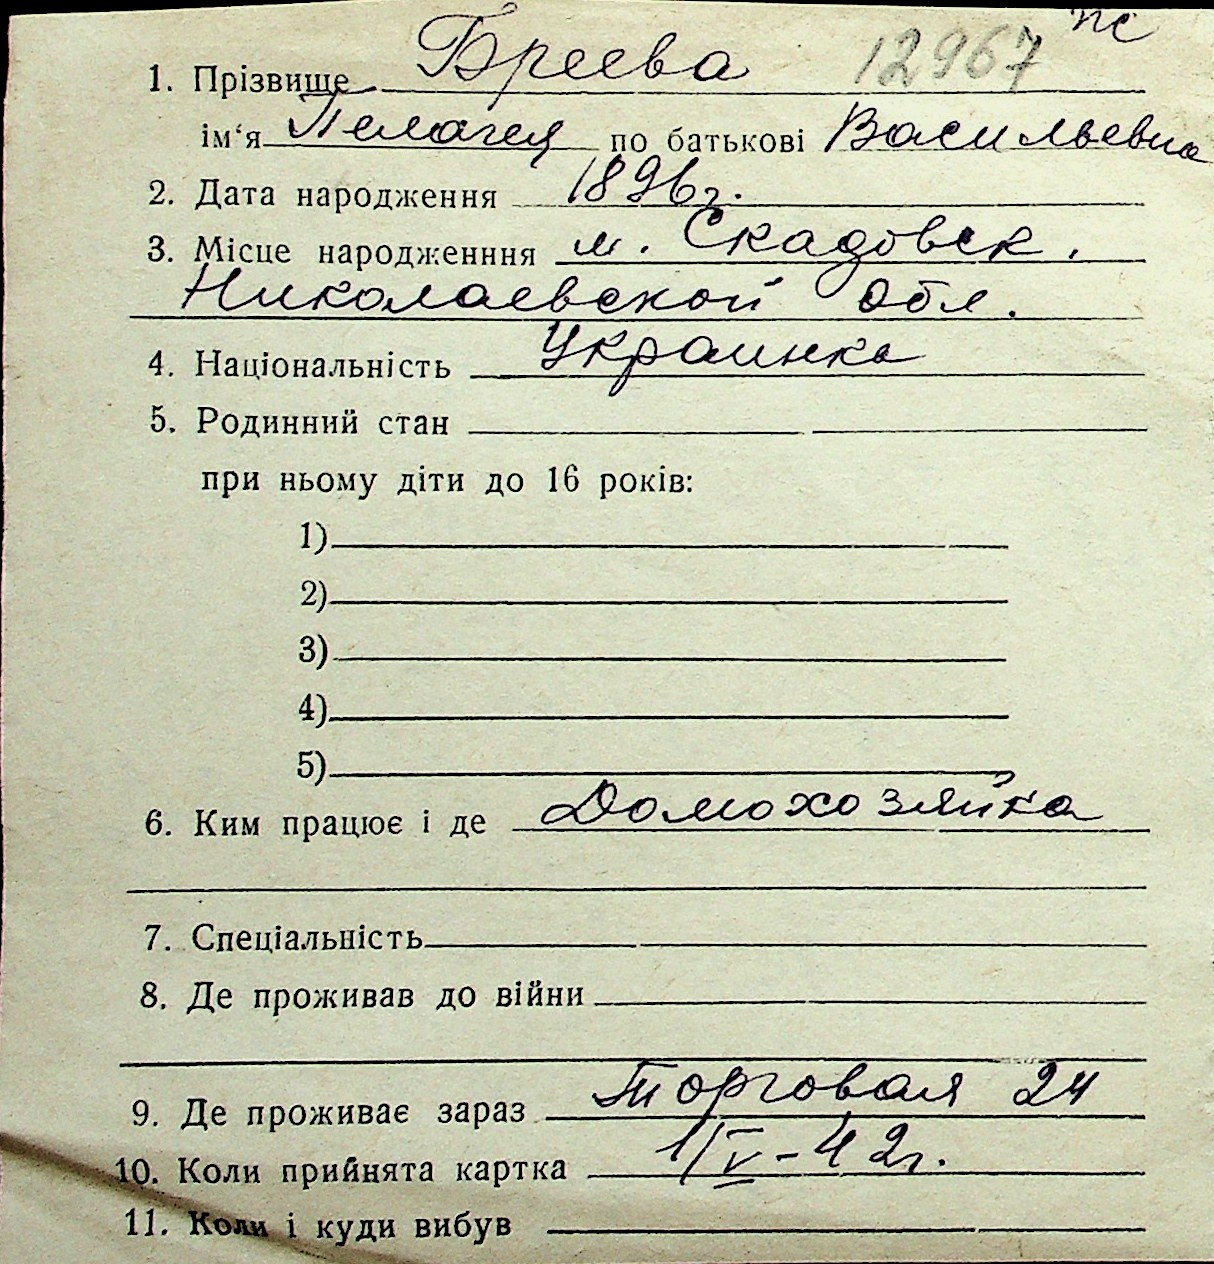 пс
1. Прізвище Бреева 12967
ім‘я Пелагея по батькові Васильевна
2. Дата народження 1896г.
3. Місце народженння м. Скадовск,
Николаевской обл.
4. Національність Украинка
5. Родинний стан
при ньому діти до 16 років:
1)
2)
3)
4)
5)
6. Ким працює і де Домохозяйка
7. Спеціальність
8. Де проживав до війни
9. Де проживає зараз Торговая 24
10. Коли прийнята картка 1/V-42г.
11. Коли і куди вибув